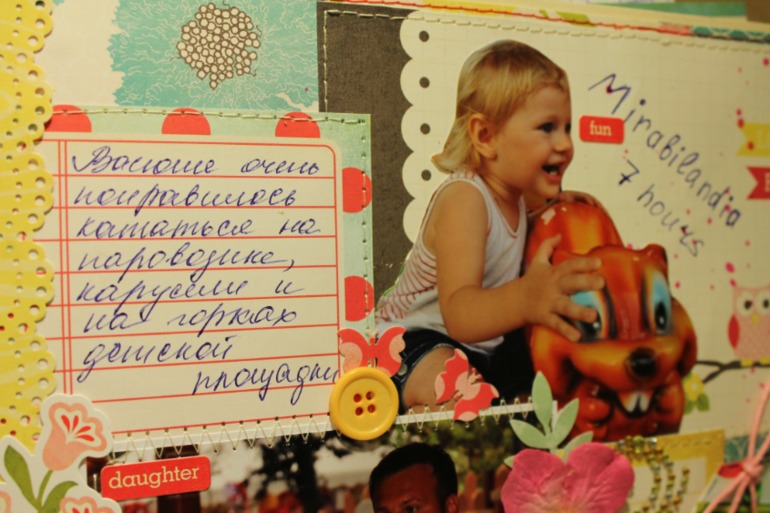 Васюше очень
понравилось
кататься на
паровозике,
карусели и
на горках
детской
площадки
fun
Mirabilandia
7 hours
daughter